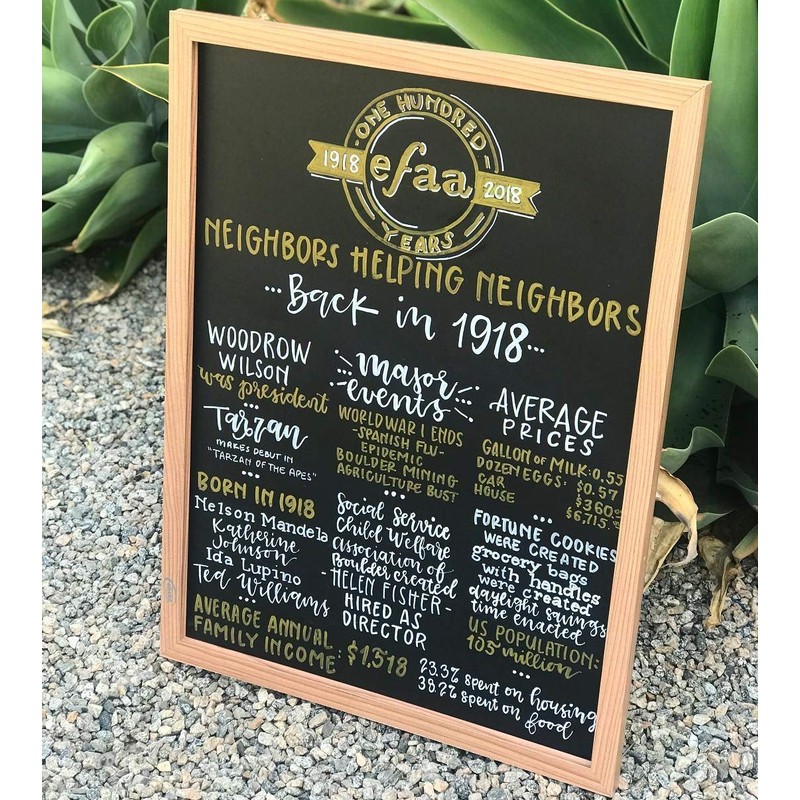 ONE HUNDRED
1918 efaa 2018
YEARS
NEIGHBORS HELPING NEIGHBORS
...Back in 1918...
WOODROW
WILSON
was president
Tarzan
MAKES DEBUT IN
"TARZAN OF THE APES"
BORN IN 1918
Nelson Mandela
Katherine
Johnson
Ida Lupino
Ted Williams
AVERAGE ANNUAL
FAMILY INCOME: $1,518
major
events
WORLD WAR I ENDS
-SPANISH FLU-
EPIDEMIC
BOULDER MINING
AGRICULTURE BUST
Social Service
Child Welfare
Association of
Boulder created
-HELEN FISHER-
HIRED AS
DIRECTOR
AVERAGE
PRICES
GALLON OF MILK: 0.55
DOZEN EGGS: $0.57
CAR $360.00
HOUSE $6,715.00
FORTUNE COOKIES
WERE CREATED
grocery bags
with handles
were created
daylight savings
time enacted
US POPULATION:
103 million
23.3% spent on housing
38.2% spent on food